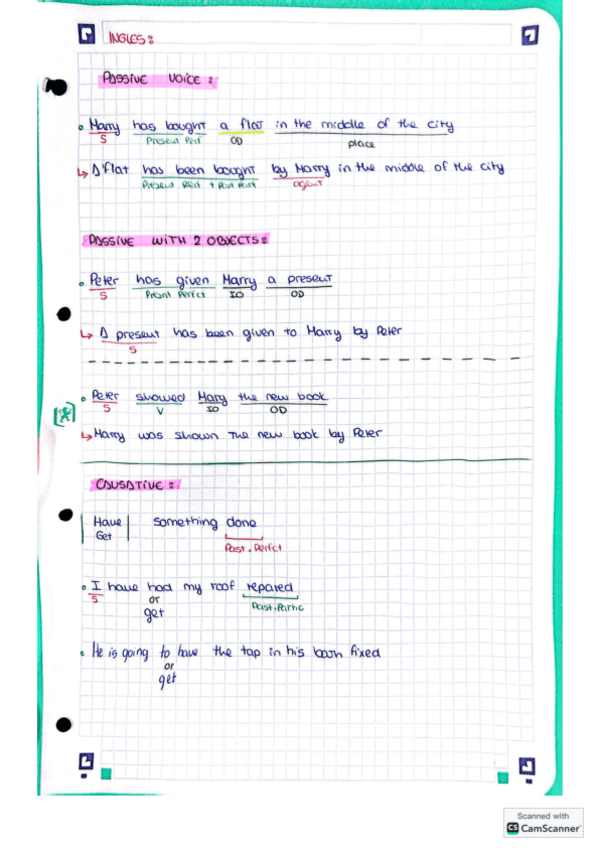 INGLES:
PASSIVE VOICE:
• Marry has bought a flat in the middle of the city
S Present Perf OD place
↳ A flat has been bought by Marry in the middle of the city
Present Perf + Past Part agent
PASSIVE WITH 2 OBJECTS:
• Peter has given Marry a present
S Present Perfect IO OD
↳ A present has been given to Marry by Peter
S
• Peter showed Mary the new book
S V IO OD
↳ Marry was shown the new book by Peter
CAUSATIVE:
Have something done
Get
Past. Perfct
• I have had my roof repared
S or Past.Partic
get
• He is going to have the tap in his bath fixed
or
get
Scanned with
CS CamScanner